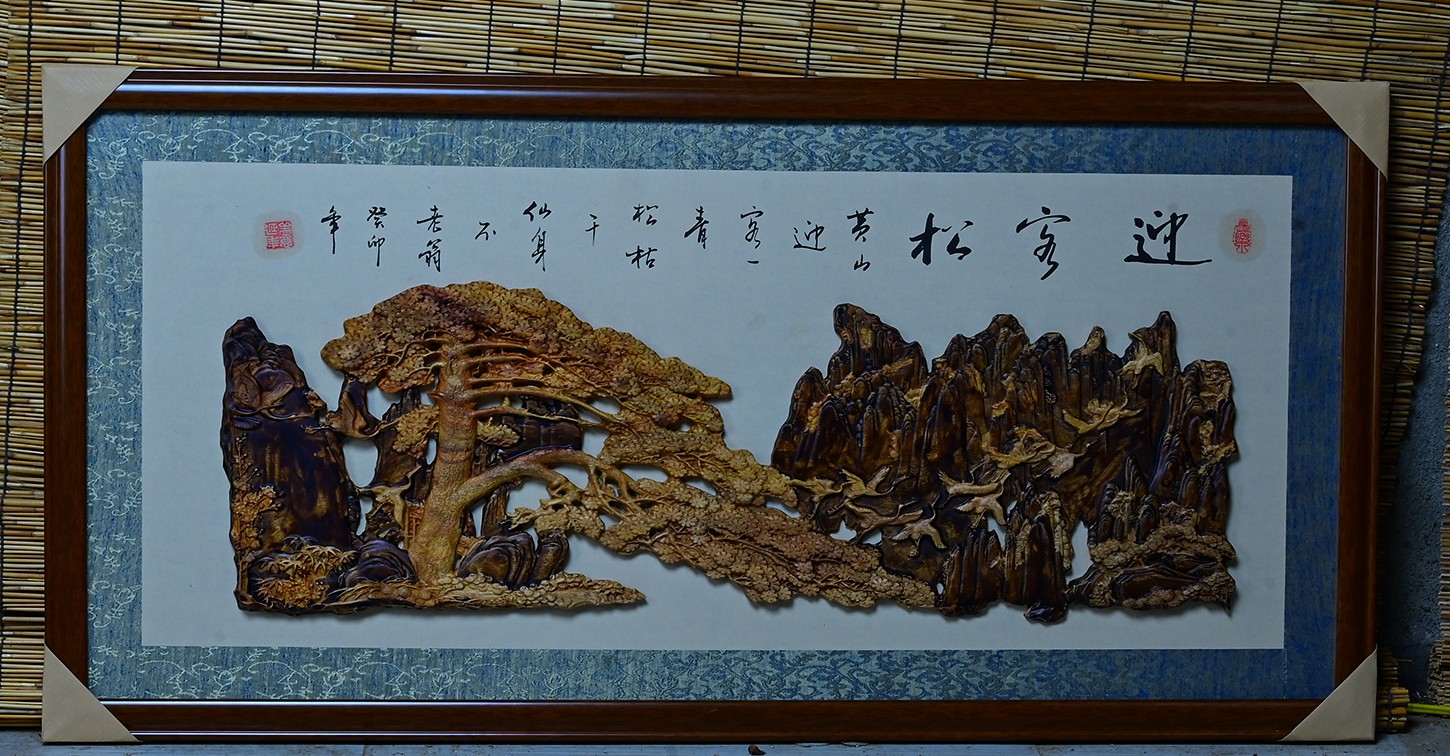 迎客松
黄山迎客一青松枯干仙身不老翁
癸卯年